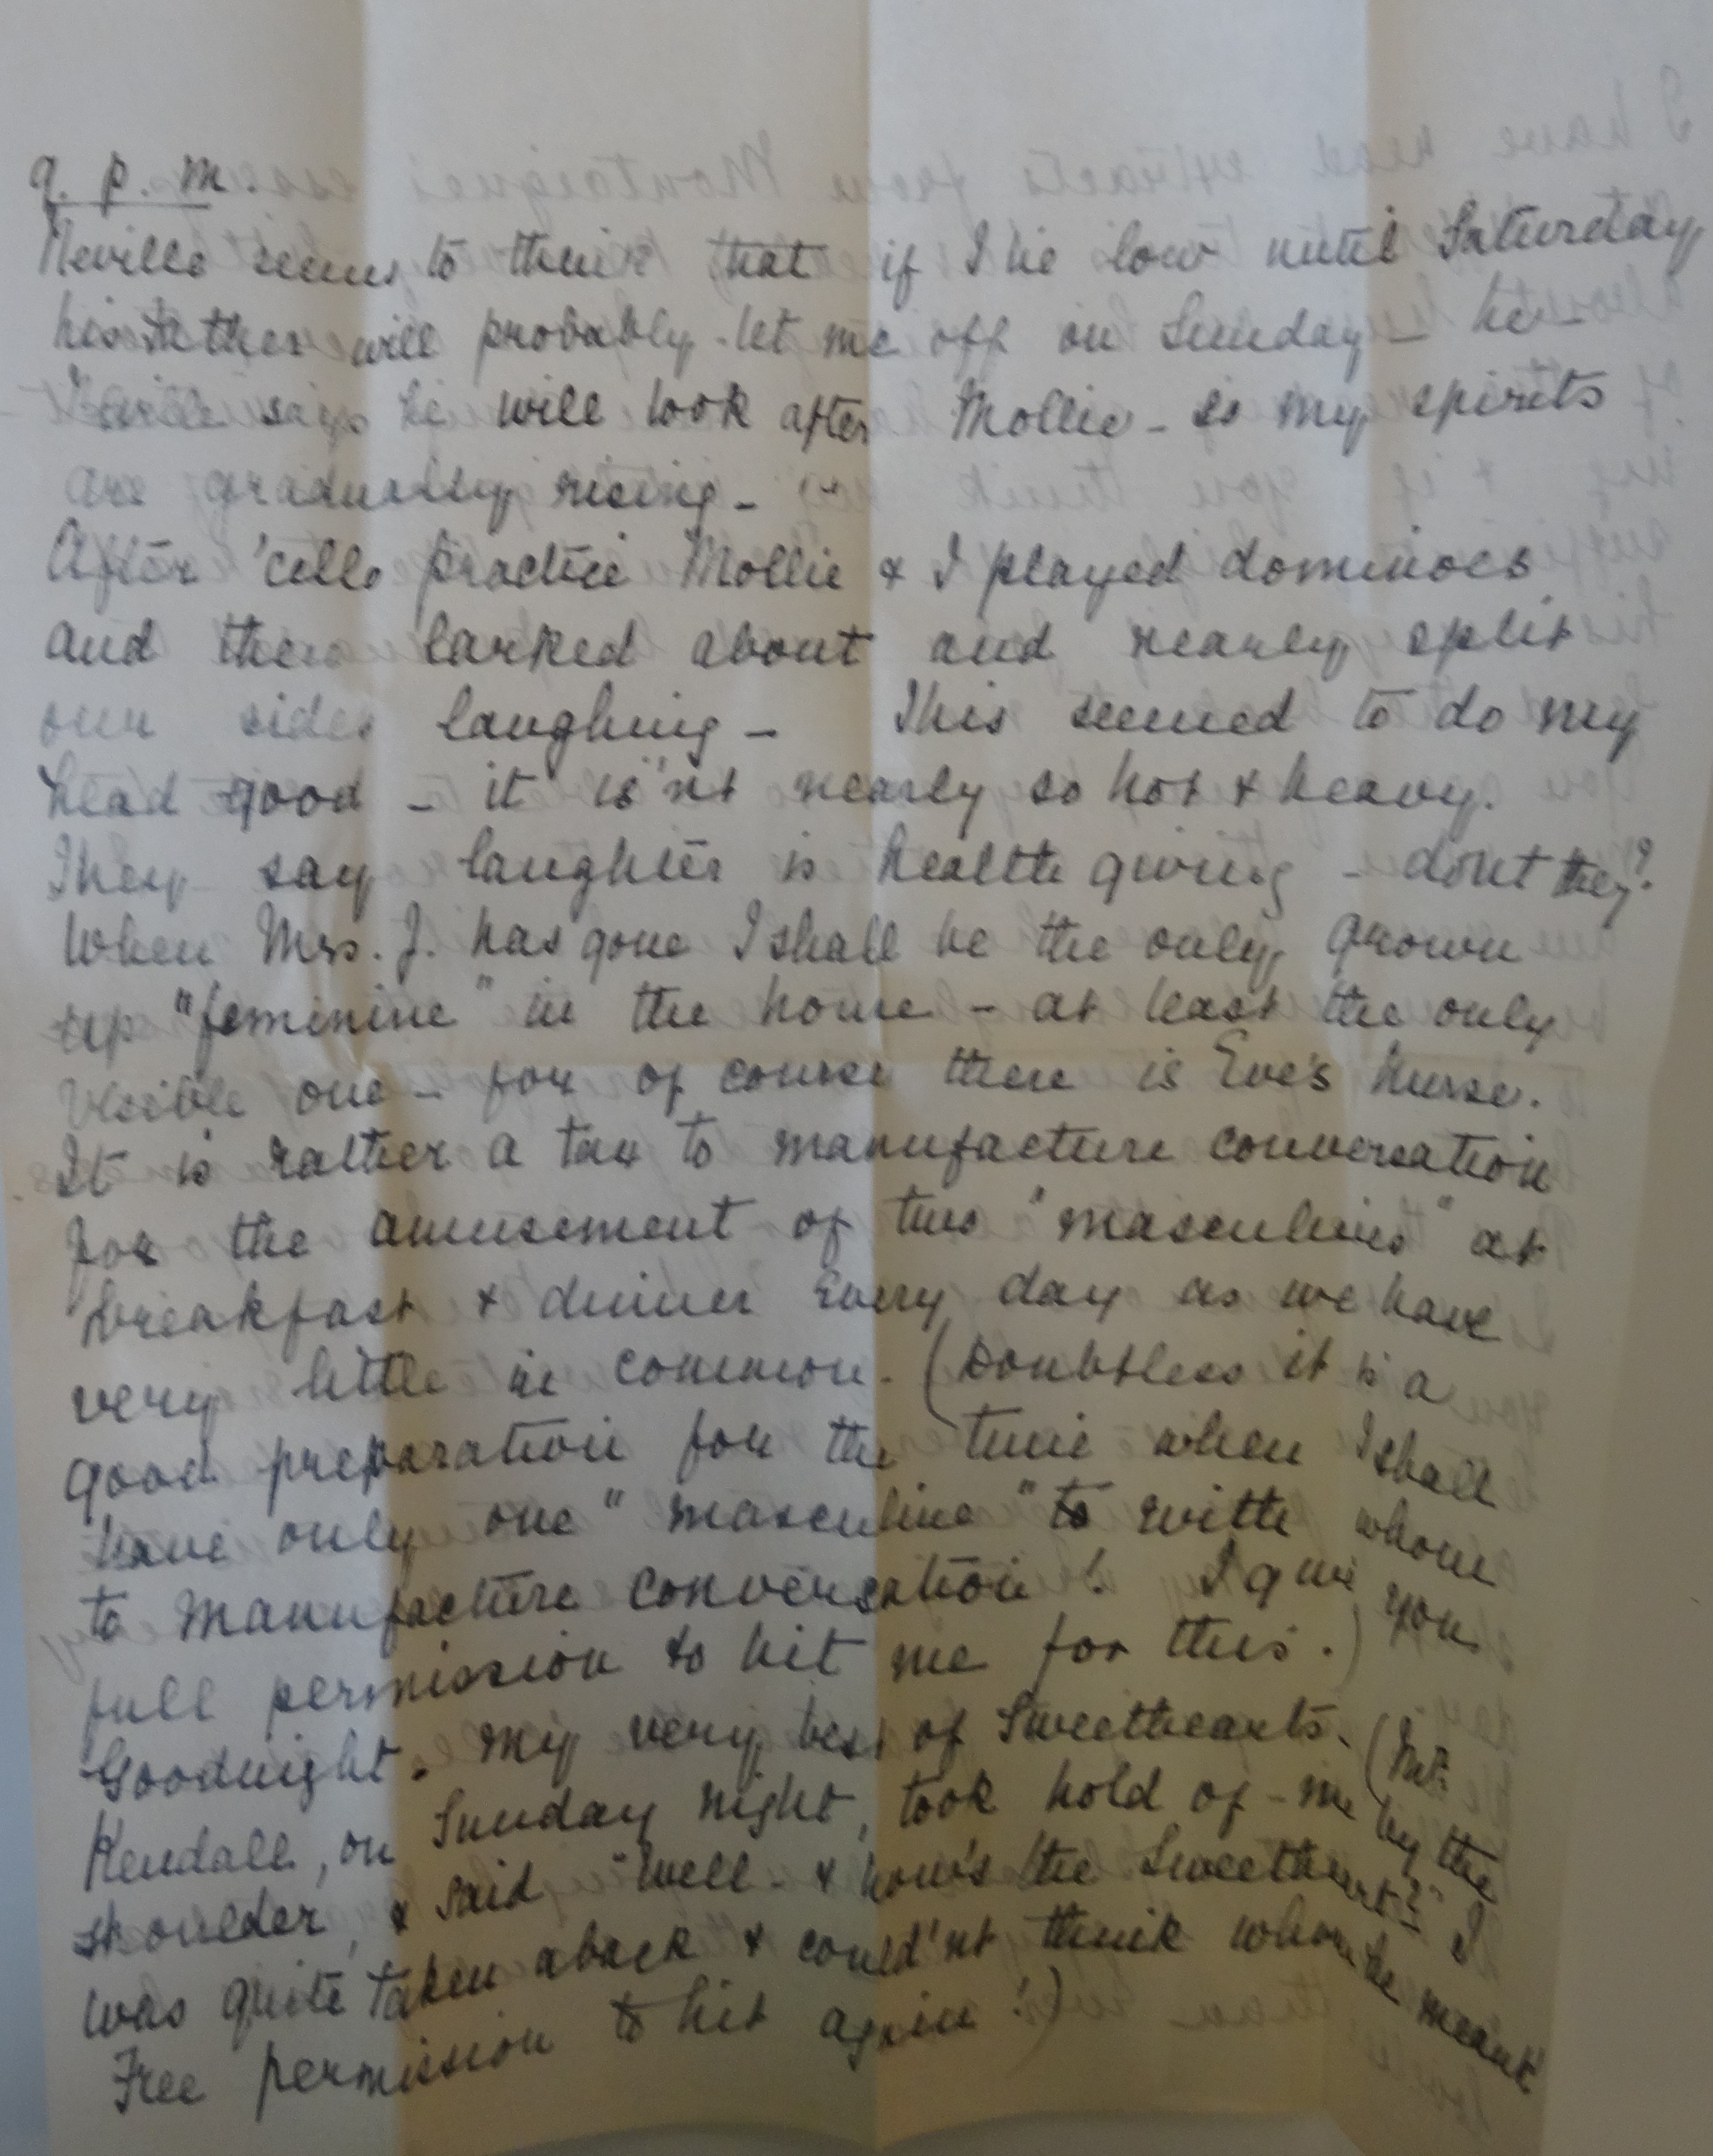 9. p. m.
Neville seems to think that if I lie low until Saturday
his father will probably let me off on Sunday – he –
Neville says he will look after Mollie – so my spirits
are gradually rising –
After 'cello practice Mollie & I played dominoes
and then larked about and nearly split
our sides laughing – This seemed to do my
head good – it is'nt nearly so hot & heavy.
They say laughter is health giving – dont they?
When Mrs. J. has gone I shall be the only grown
up "feminine" in the house – at least the only
visible one – for of course there is Eve's nurse.
It is rather a tax to manufacture conversation
for the amusement of two "masculines" at
breakfast & dinner every day as we have
very little in common. (Doubtless it is a
good preparation for the time when I shall
have only one "masculine" to with whom
to manufacture conversation! I give you
full permission to hit me for this.)
Goodnight. My very best of Sweethearts. (Mr.
Kendall, on Sunday night, took hold of me by the
shoulder, & said "Well – & how's the Sweetheart?" I
was quite taken aback & could'nt think whom he meant
Free permission to hit again!)